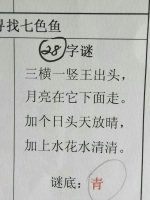 寻找七色鱼
28字谜
三横一竖王出头，
月亮在它下面走。
加个日头天放晴，
加上水花水清清。
谜底：青